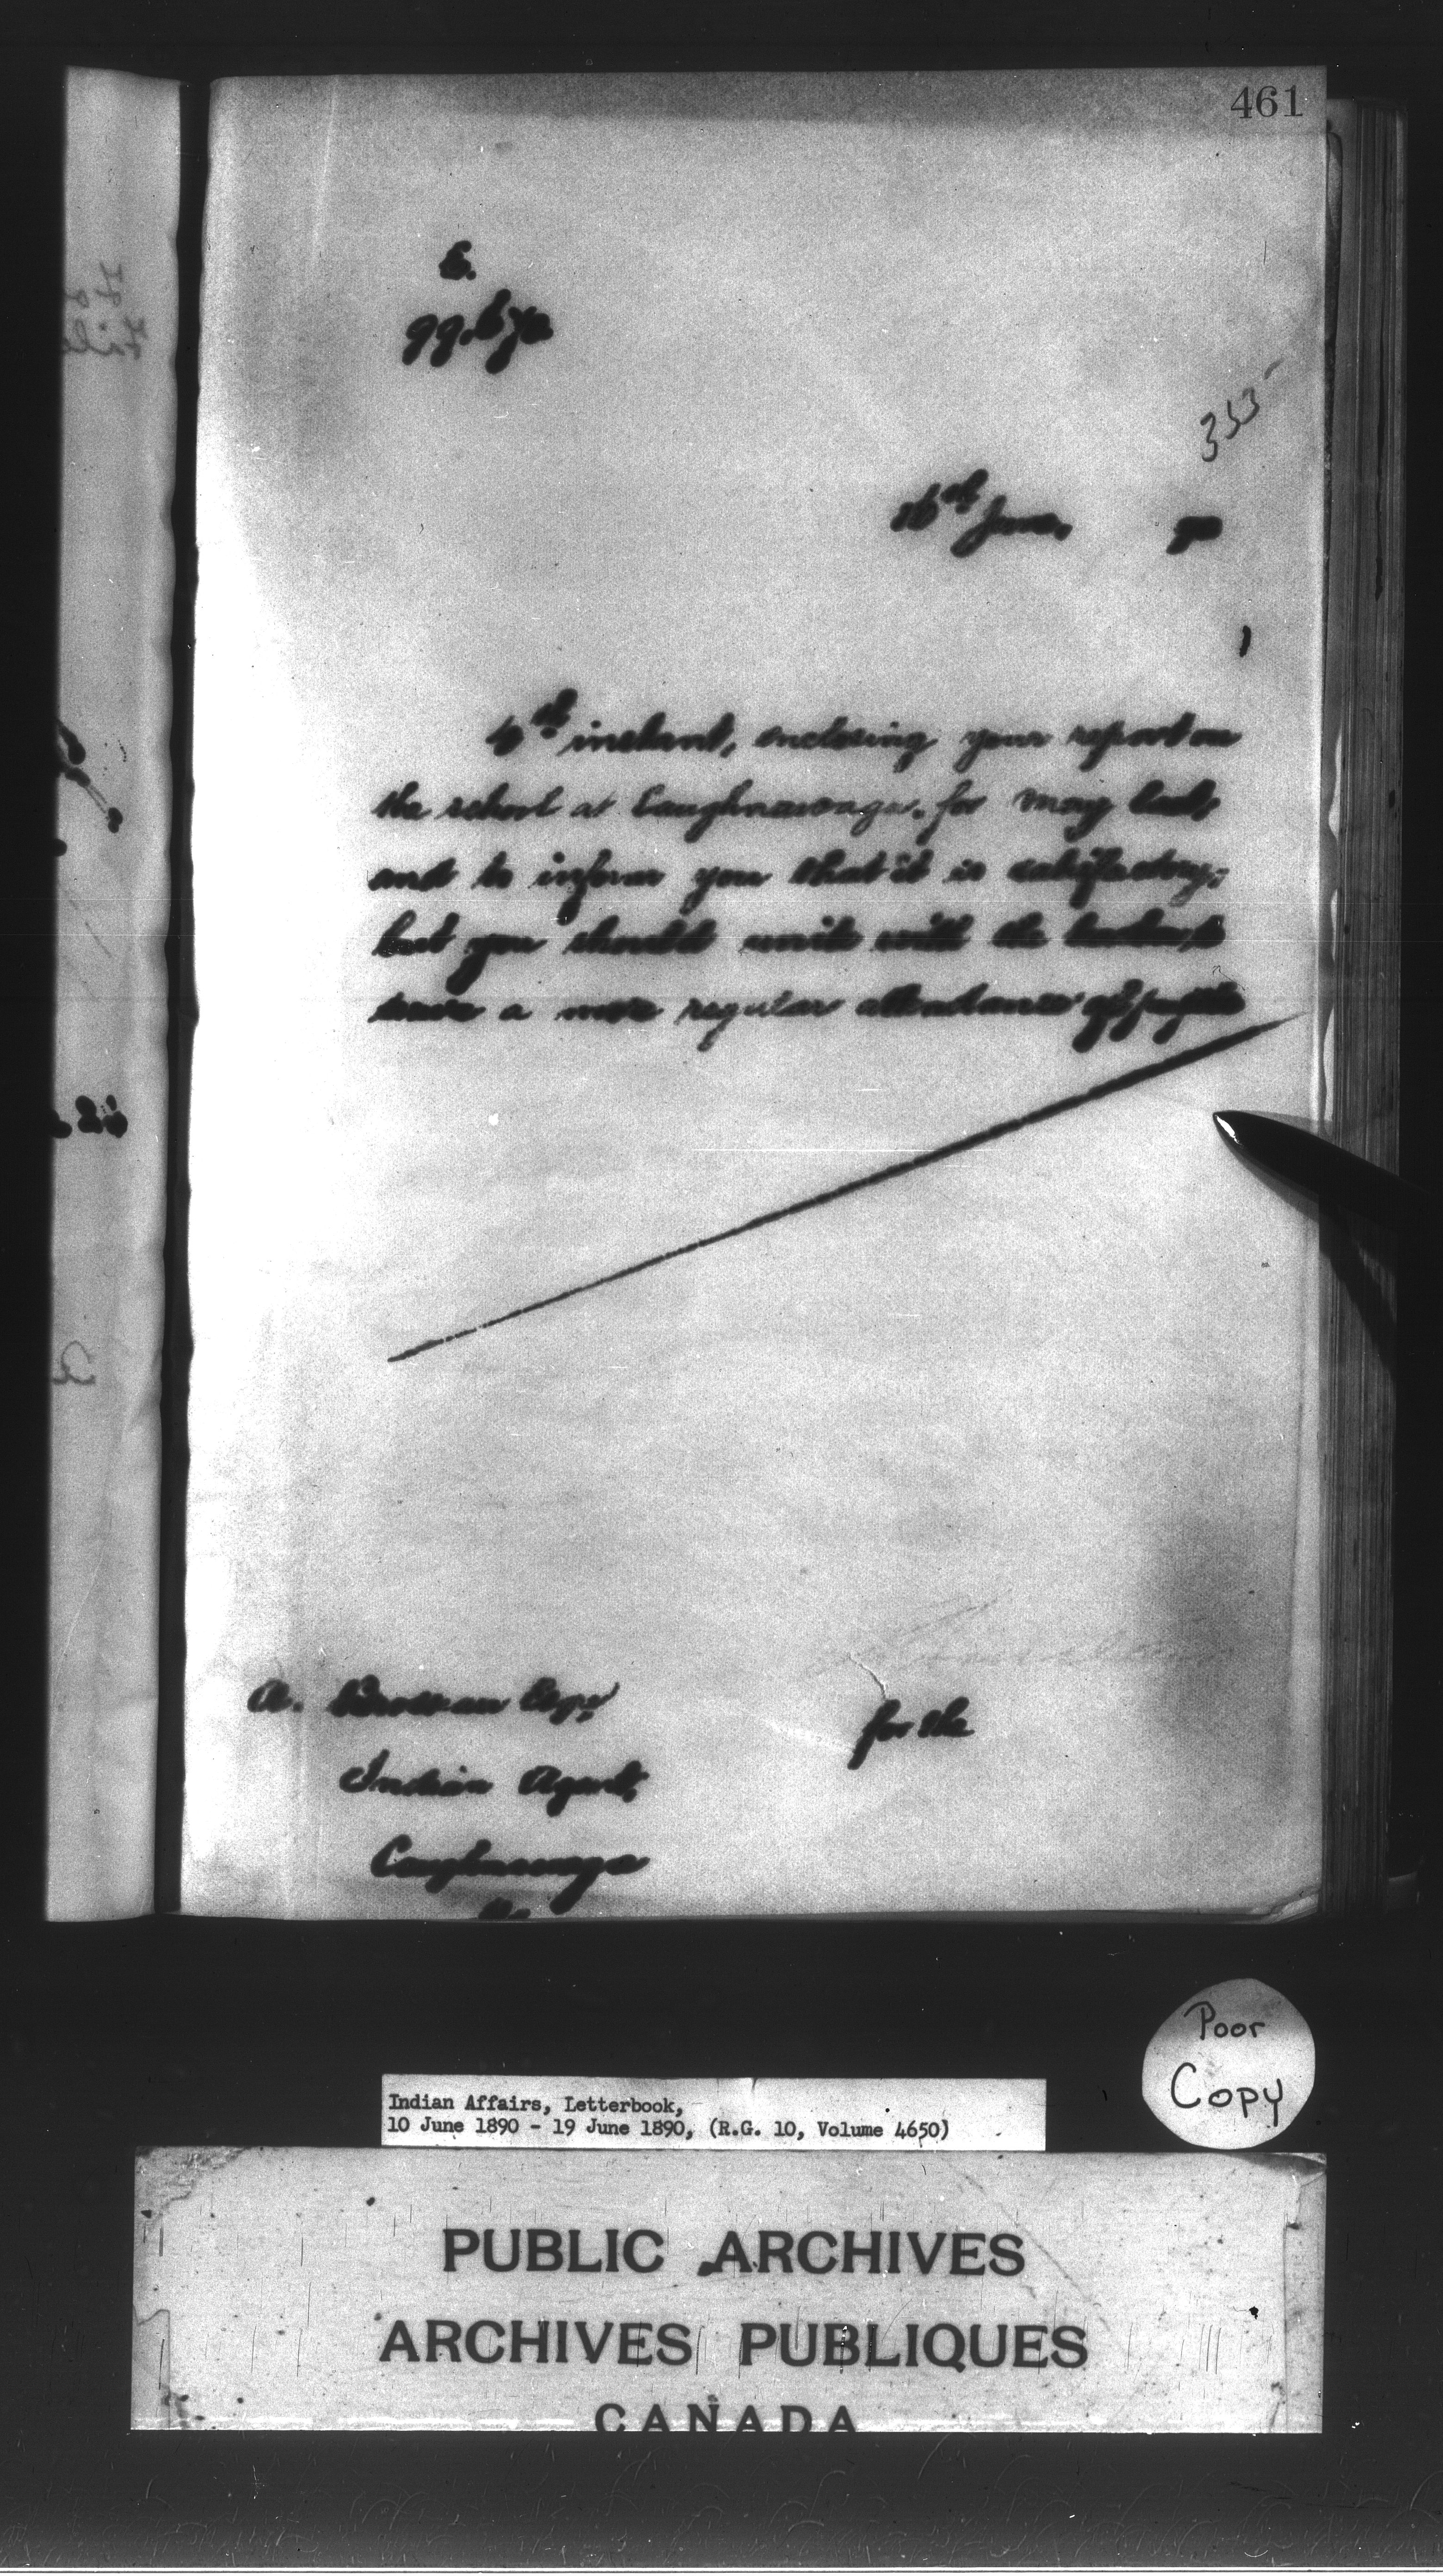 461
E.
353
16th June, 90
6th instant, enclosing your report on
the school at Caughnawaga, for May last,
and to inform you that it is satisfactory;
but you should unite with the teacher, to
secure a more regular attendance of pupils
A. Brosseau Esqr,
for the
Indian Agent,
Caughnawaga
Poor
Copy
Indian Affairs, Letterbook,
10 June 1890 - 19 June 1890, (R.G. 10, Volume 4650)
PUBLIC ARCHIVES
ARCHIVES PUBLIQUES
CANADA